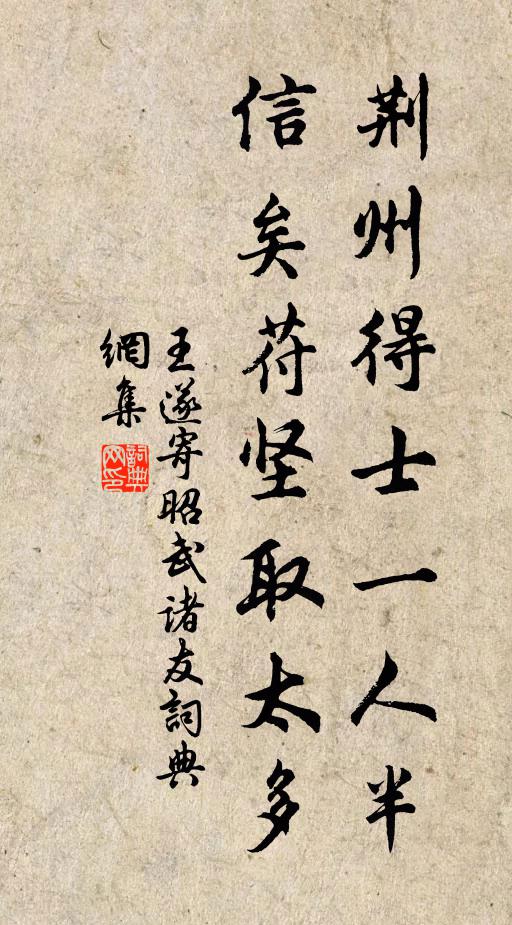 荆州得士一人半
信矣苻坚取太多
王遂寄昭武诸友詞典
網集
詞典
网印